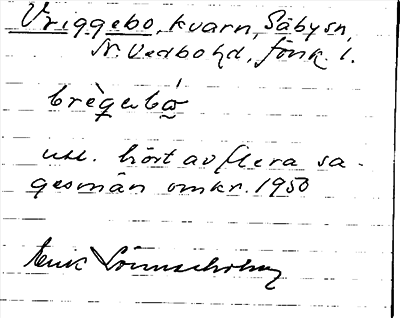 Vriggebo, kvarn, Säby sn,
N. Vedbo hd, Jönk. l.
brèg̣ebó̱
utt. hört av flera sa-
gesmän omkr. 1950
Erik